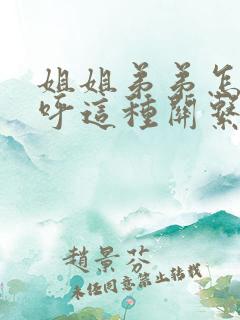 姐姐弟弟怎
呼這種關繫
趙景芬
未經同意禁止轉載